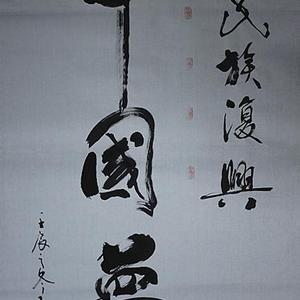 民族復興
中國夢
壬辰之冬